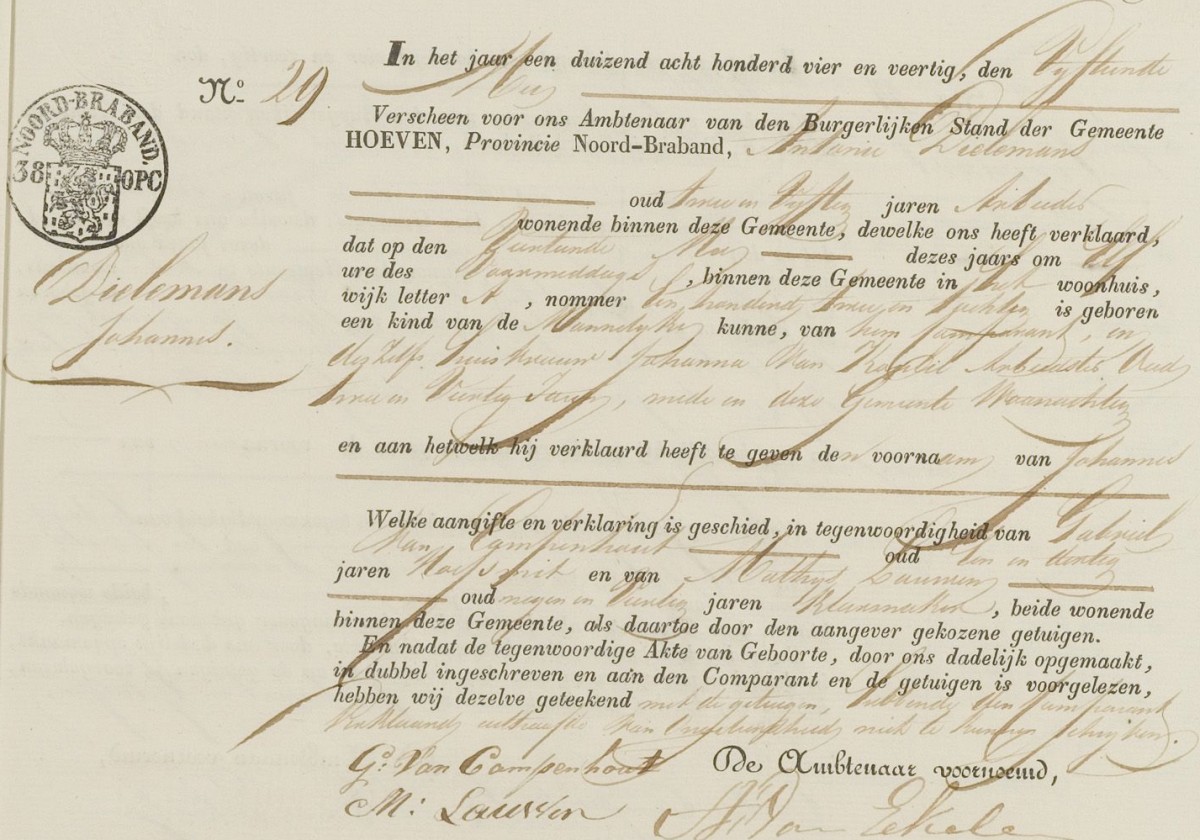 NOORD-BRABAND.
38 OPC
Nº. 29
Dielemans
Johannes.
In het jaar een duizend acht honderd vier en veertig, den Vyftiende
Mey
Verscheen voor ons Ambtenaar van den Burgerlijken Stand der Gemeente
HOEVEN, Provincie Noord-Braband, Antonie Dielemans
oud twee en Vyftig jaren Arbeider
wonende binnen deze Gemeente, dewelke ons heeft verklaard,
dat op den Mey dezes jaars om Elf
ure des Voormiddags, binnen deze Gemeente in het woonhuis,
wijk letter A, nommer Een honderd twee en is geboren
een kind van de Mannelyke kunne, van hem Comparant, en
deszelfs huisvrouw Johanna Van Arbeidster Oud
twee en Veertig Jaren, mede in deze Gemeente Woonachtig
en aan hetwelk hij verklaard heeft te geven den voornaam van Johannes
Welke aangifte en verklaring is geschied, in tegenwoordigheid van Gabriel
Van Campenhout oud een en dertig
jaren Hoefsmit en van Mathys Lauwen
oud negen en Veertig jaren Kleermaker, beide wonende
binnen deze Gemeente, als daartoe door den aangever gekozene getuigen.
En nadat de tegenwoordige Akte van Geboorte, door ons dadelijk opgemaakt,
in dubbel ingeschreven en aan den Comparant en de getuigen is voorgelezen,
hebben wij dezelve geteekend met de getuigen, hebbende den Comparant
Verklaard uit van niet te kunnen Schryven.
G. Van Campenhout De Ambtenaar voornoemd,
M: Lauwen Van Eekele